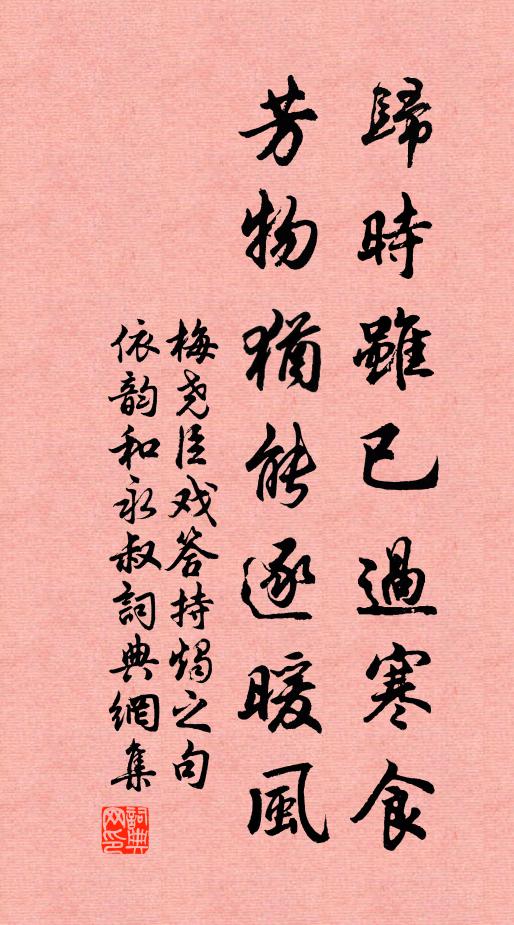 歸時雖已過寒食
芳物猶能逐暖風
梅尧臣戏答持燭之句
依韵和永叔詞典網集
詞典网印